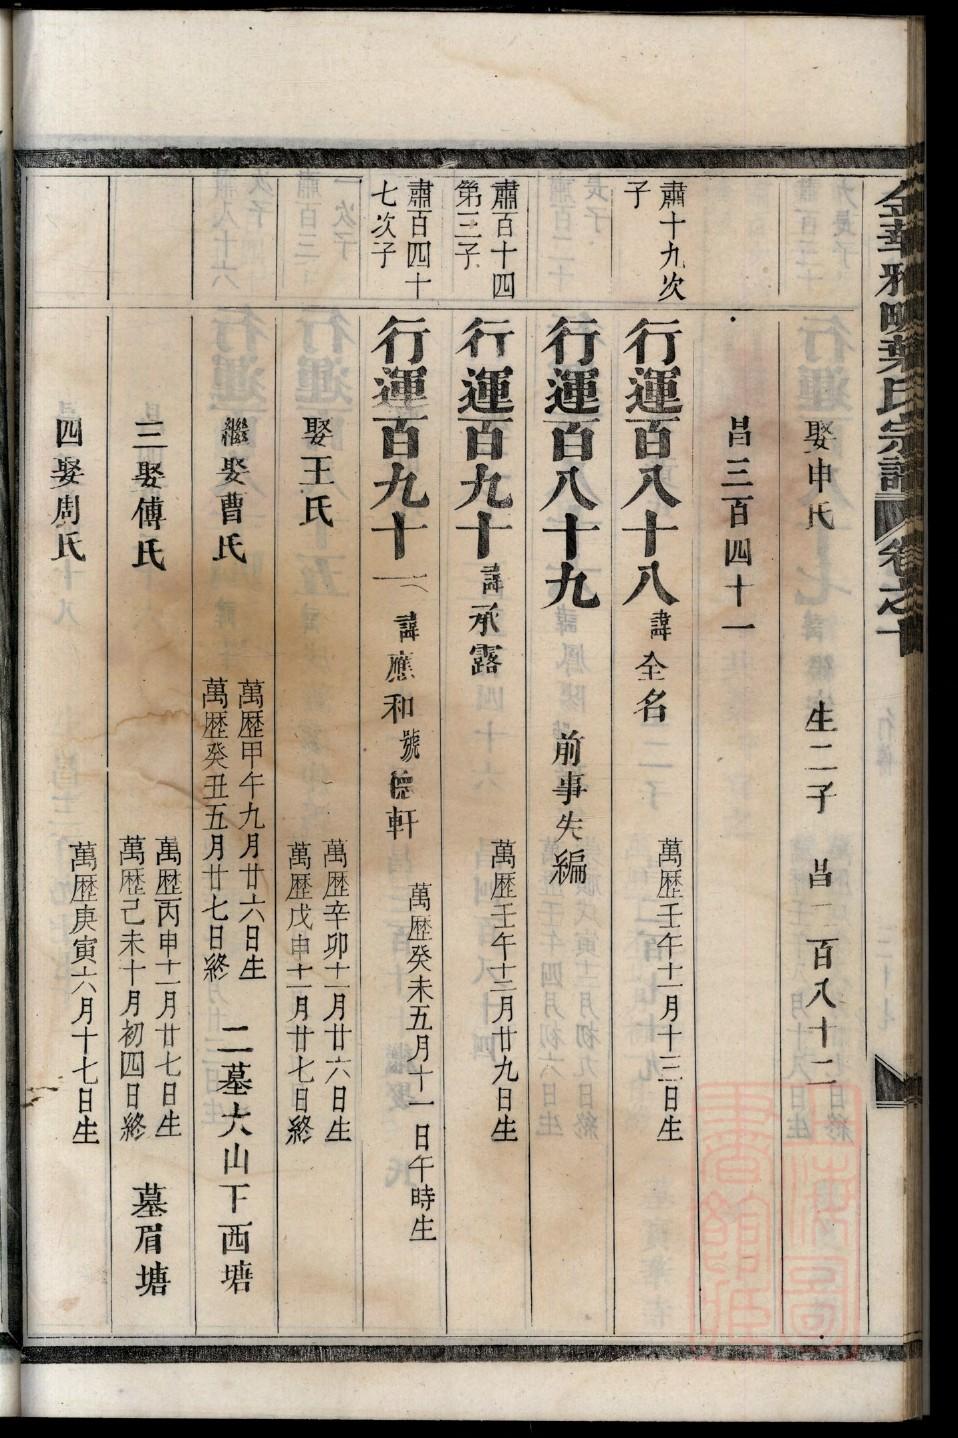 金華雅畈葉氏宗譜 卷之十
娶申氏 生二子 昌一百八十二
昌三百四十一
肅十九次子
行運百八十八 諱全名 萬歷壬午十一月十三日生
行運百八十九 前事失編
肅百十四第三子
行運百九十 諱承露 萬歷壬午十二月廿九日生
肅百四十七次子
行運百九十一 諱應和號德軒 萬歷癸未五月十一日午時生
娶王氏 萬歷辛卯十一月廿六日生
萬歷戊申十一月廿七日終
繼娶曹氏 萬歷甲午九月廿六日生
萬歷癸丑五月廿七日終 二墓大山下西塘
三娶傅氏 萬歷丙申十一月廿七日生
萬歷己未十月初四日終 墓眉塘
四娶周氏 萬歷庚寅六月十七日生